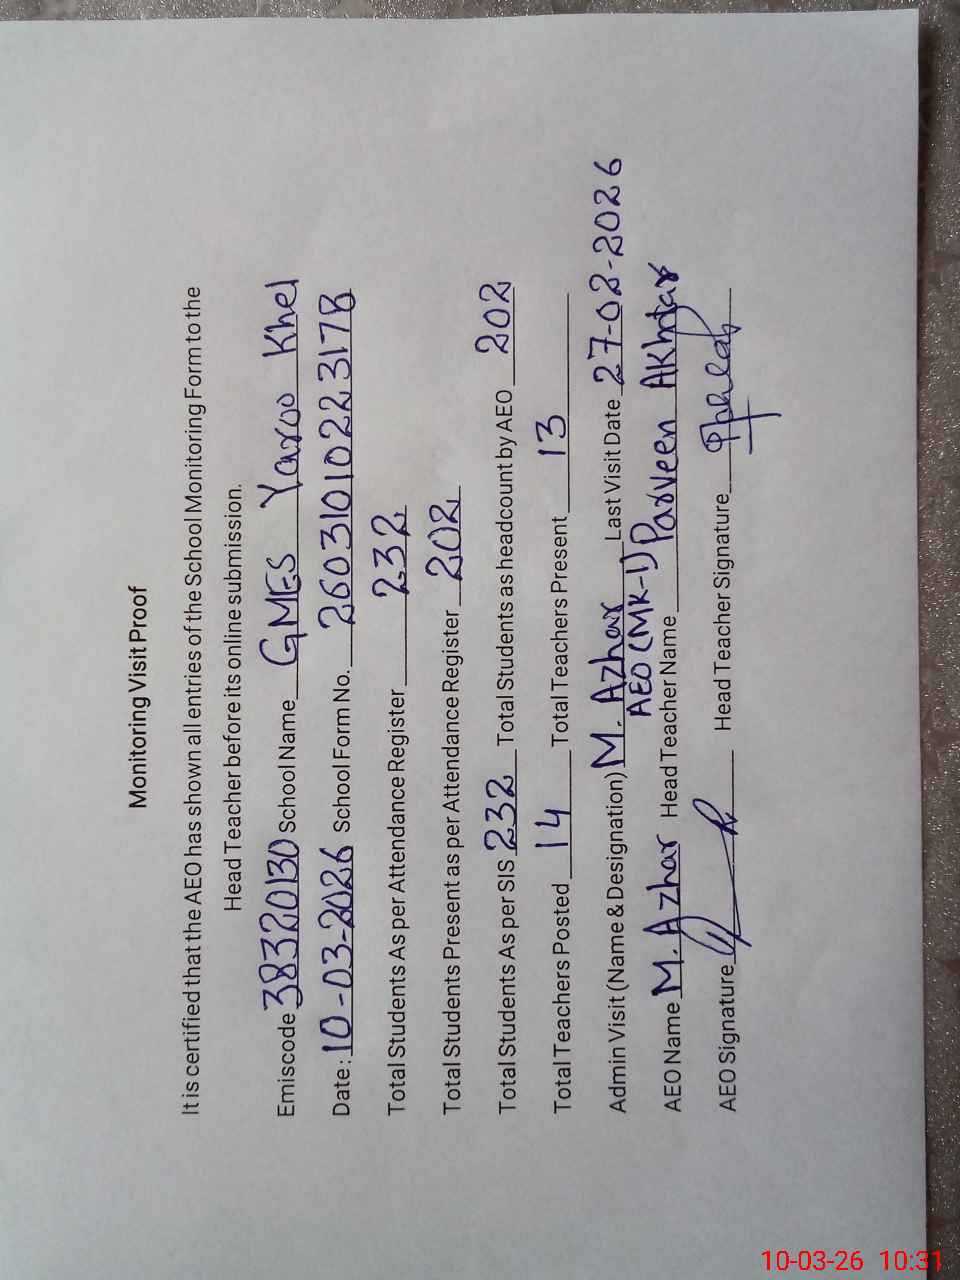 Monitoring Visit Proof
It is certified that the AEO has shown all entries of the School Monitoring Form to the
Head Teacher before its online submission.
Emiscode 38320130 School Name GMES Yaroo Khel
Date: 10-03-2026 School Form No. 26031010223178
Total Students As per Attendance Register 232
Total Students Present as per Attendance Register 202
Total Students As per SIS 232 Total Students as headcount by AEO 202
Total Teachers Posted 14 Total Teachers Present 13
Admin Visit (Name & Designation) M. Azhar Last Visit Date 27-02-2026
AEO (MK-1)
AEO Name M. Azhar Head Teacher Name Parveen Akhtar
AEO Signature Head Teacher Signature
10-03-26 10:31